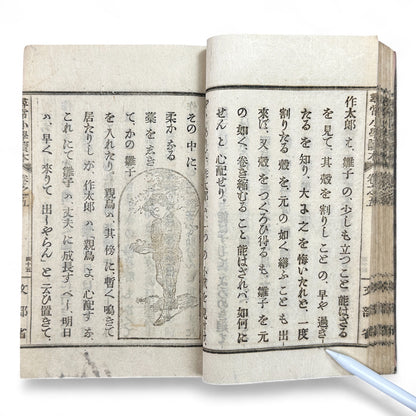 作太郎も、雛子の、少しも立つこと能はざる
を見て、其殻を割りしことの早や過ぎ
たるを知り、大に之を悔いたれど、一度
割りたる殻を、元の如く繕ふことも出
來ず、又殻をつくろひ得るも、雛子を元
の如く、巻き縮むること能はざれバ、如何に
せんと心配せり。
その中に、
柔かなる
藁をしき
て、かの雛子
を入れたり。親鳥ハ、其傍に、暫く鳴きて
居たりしが、作太郎ハ、「親鳥よ、心配するな。
これにて雛子ハ、丈夫に成長すべし、明日
ハ、早く來りて出しやらん」と云ひ置きて、
尋常小學讀本
巻之五
四十五
文部省